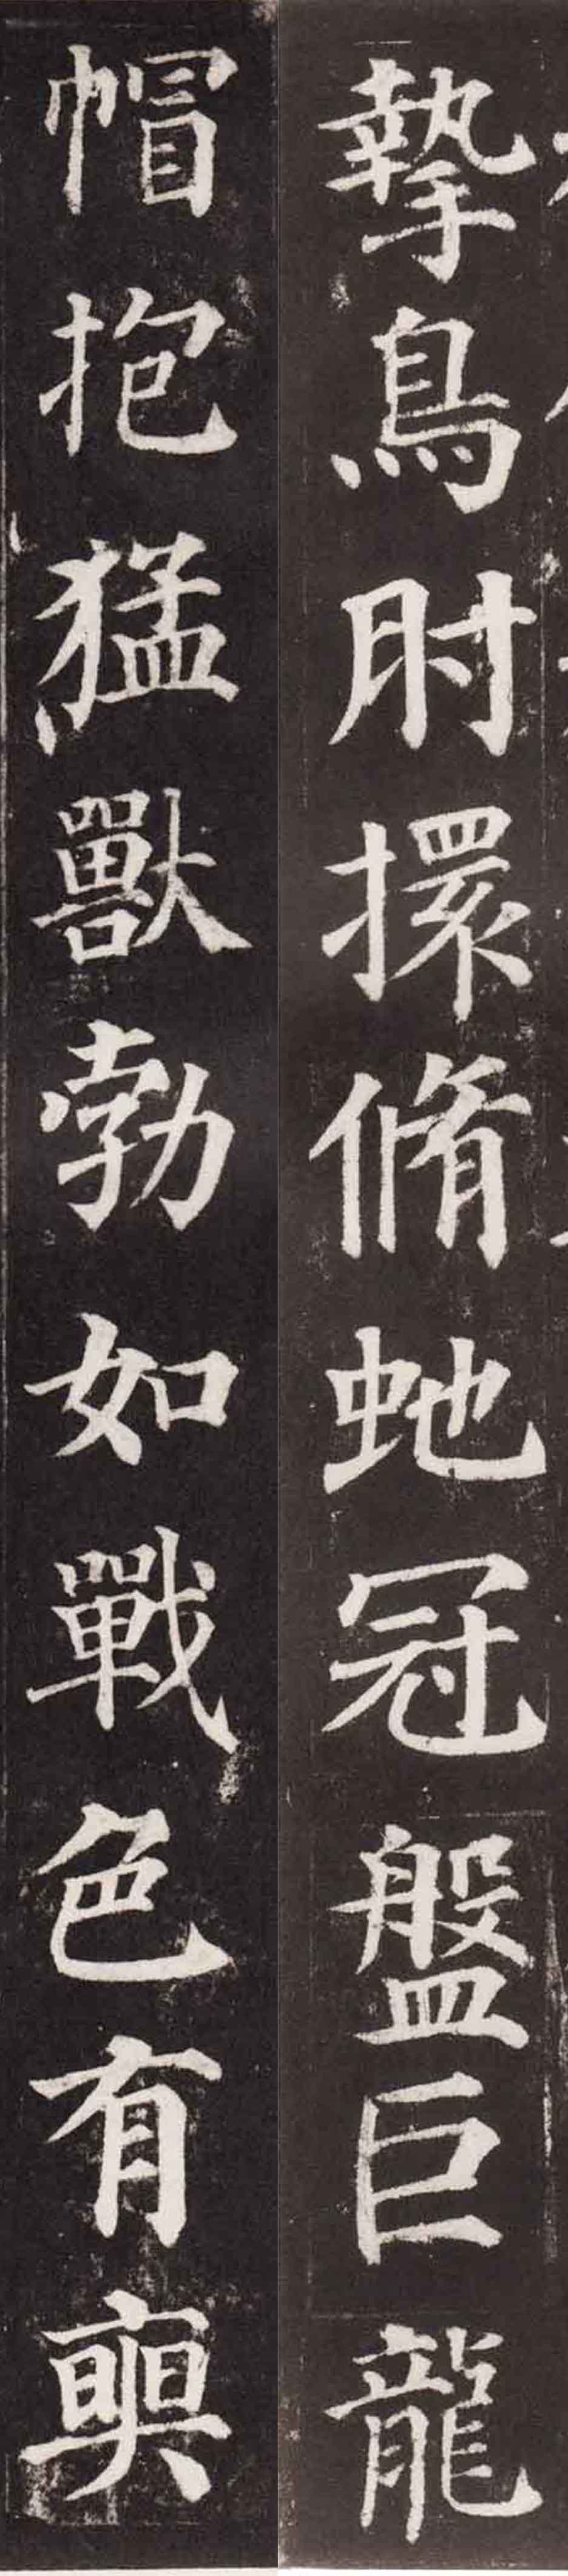 摯鳥肘擐脩虵冠盤巨龍
帽抱猛獸勃如戰色有奭